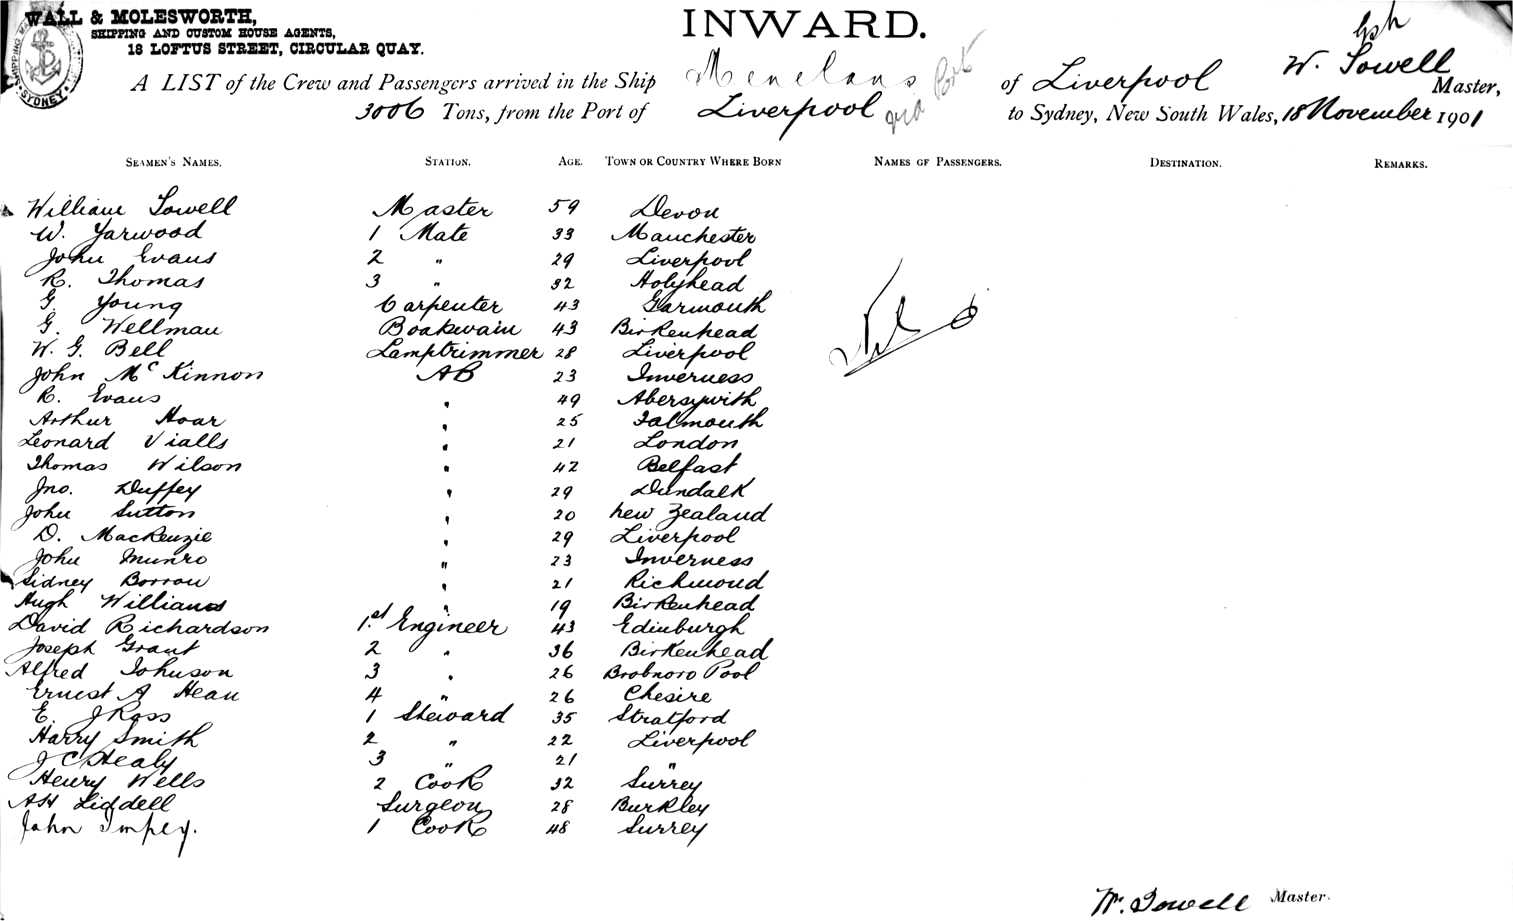 WALL & MOLESWORTH,
SHIPPING AND CUSTOM HOUSE AGENTS,
18 LOFTUS STREET, CIRCULAR QUAY.
SYDNEY
INWARD.
A LIST of the Crew and Passengers arrived in the Ship Menelaus of Liverpool W. Lowell Master,
3006 Tons, from the Port of Liverpool via to Sydney, New South Wales, 18 November 1901
SEAMEN'S NAMES. STATION. AGE. TOWN OR COUNTRY WHERE BORN NAMES OF PASSENGERS. DESTINATION. REMARKS.
William Lowell Master 59 Devon
W. Yarwood 1 Mate 33 Manchester
John Evans 2 " 29 Liverpool
R. Thomas 3 " 32 Holyhead
G. Young Carpenter 43 Garmouth
G. Wellman Boatswain 43 Birkenhead
W. G. Bell Lamptrimmer 28 Liverpool
Nil
John McKinnon AB 23 Inverness
R. Evans " 49 Abersywith
Arthur Hoar " 25 Falmouth
Leonard Vialls " 21 London
Thomas Wilson " 42 Belfast
Jno. Duffey " 29 Dundalk
John Sutton " 20 New Zealand
D. MacKenzie " 29 Liverpool
John Munro " 23 Inverness
Sidney Borrow " 21 Richmond
Hugh Williams " 19 Birkenhead
David Richardson 1.st Engineer 43 Edinburgh
Joseph Grant 2 " 36 Birkenhead
Alfred Johnson 3 " 26 Pool
Ernest A Hean 4 " 26 Chesire
E. J Ross 1 Steward 35 Stratford
Harry Smith 2 " 22 Liverpool
J C Healy 3 " 21 "
Henry Wells 2 Cook 32 Surrey
AH Liddell Surgeon 28 Burkley
John Impey. 1 Cook 48 Surrey
W. Lowell Master.